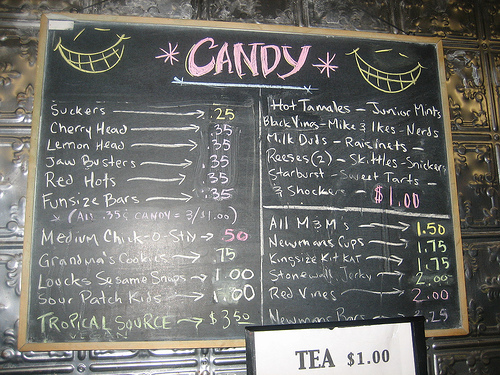 * CANDY *
Suckers → .25
Cherry Head → .35
Lemon Head → .35
Jaw Busters → .35
Red Hots → .35
Funsize Bars → .35
* (All .35¢ CANDY = 3/$1.00)
Medium Chick-O-Stix → .50
Grandma's Cookies → .75
Loucks Sesame Snaps → 1.00
Sour Patch Kids → 1.00
TROPICAL SOURCE → $3.50
VEGAN
Hot Tamales – Junior Mints
Black Vines – Mike & Ikes – Nerds
Milk Duds – Raisinets –
Reeses (2) – Skittles – Snickers
Starburst – Sweet Tarts –
& Shockers – $1.00
All M&M's → 1.50
Newmans Cups → 1.75
Kingsize Kit KAT → 1.75
Stonewall Jerky → 2.00
Red Vines → 2.00
Newmans Bars .25
TEA $1.00